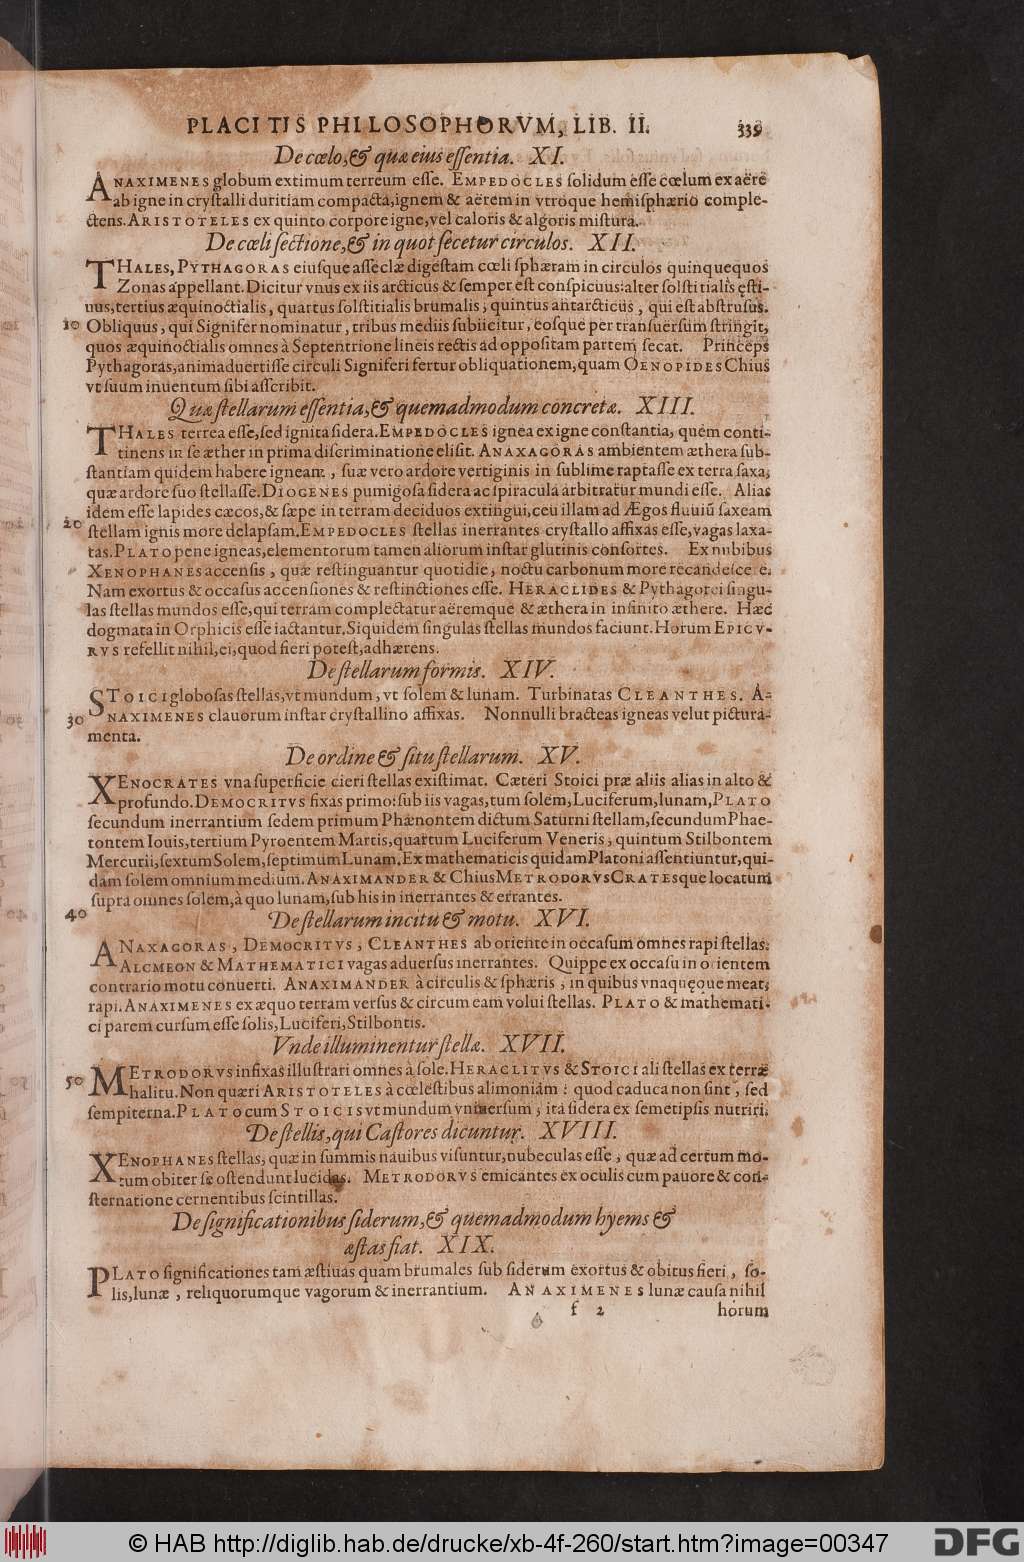 PLACITIS PHILOSOPHORVM, LIB. II. 335
De cœlo, & quæ eius eſſentia. XI.
ANAXIMENES globum extimum terreum eſſe. EMPEDOCLES ſolidum eſſe cœlum ex aëre
ab igne in cryſtalli duritiam compacta, ignem & aërem in vtroque hemiſphærio comple-
ctens. ARISTOTELES ex quinto corpore igne, vel caloris & algoris miſtura.
De cœli ſectione, & in quot ſecetur circulos. XII.
THALES, PYTHAGORAS eiuſque aſſeclæ digeſtam cœli ſphæram in circulos quinque quos
Zonas appellant. Dicitur vnus ex iis arcticus & ſemper eſt conſpicuus: alter ſolſtitialis ęſti-
uus, tertius æquinoctialis, quartus ſolſtitialis brumalis, quintus antarcticus, qui eſt abſtruſus.
10 Obliquus, qui Signifer nominatur, tribus mediis ſubiicitur, eoſque per tranſuerſum ſtringit,
quos æquinoctialis omnes à Septentrione lineis rectis ad oppoſitam partem ſecat. Princeps
Pythagoras, animaduertiſſe circuli Signiferi fertur obliquationem, quam OENOPIDES Chius
vt ſuum inuentum ſibi aſſcribit.
Quæ ſtellarum eſſentia, & quemadmodum concretæ. XIII.
THALES terrea eſſe, ſed ignita ſidera. EMPEDOCLES ignea ex igne conſtantia, quem conti-
tinens in ſe æther in prima diſcriminatione eliſit. ANAXAGORAS ambientem æthera ſub-
ſtantiam quidem habere igneam, ſuæ vero ardore vertiginis in ſublime raptaſſe ex terra ſaxa,
quæ ardore ſuo ſtellaſſe. DIOGENES pumigoſa ſidera ac ſpiracula arbitratur mundi eſſe. Alias
idem eſſe lapides cæcos, & ſæpe in terram deciduos extingui, ceu illam ad Ægos fluuiū ſaxeam
20 ſtellam ignis more delapſam. EMPEDOCLES ſtellas inerrantes cryſtallo affixas eſſe, vagas laxa-
tas. PLATO pene igneas, elementorum tamen aliorum inſtar glutinis conſortes. Ex nubibus
XENOPHANES accenſis, quæ reſtinguantur quotidie, noctu carbonum more recandeſcere.
Nam exortus & occaſus accenſiones & reſtinctiones eſſe. HERACLIDES & Pythagorei ſingu-
las ſtellas mundos eſſe, qui terram complectatur aëremque & æthera in infinito æthere. Hæc
dogmata in Orphicis eſſe iactantur. Siquidem ſingulas ſtellas mundos faciunt. Horum EPICV-
RVS refellit nihil, ei, quod fieri poteſt, adhærens.
De ſtellarum formis. XIV.
STOICI globoſas ſtellas, vt mundum, vt ſolem & lunam. Turbinatas CLEANTHES. A-
30 NAXIMENES clauorum inſtar cryſtallino affixas. Nonnulli bracteas igneas velut pictura-
menta.
De ordine & ſitu ſtellarum. XV.
XENOCRATES vna ſuperficie cieri ſtellas exiſtimat. Cæteri Stoici præ aliis alias in alto &
profundo. DEMOCRITVS fixas primo: ſub iis vagas, tum ſolem, Luciferum, lunam, PLATO
ſecundum inerrantium ſedem primum Phænontem dictum Saturni ſtellam, ſecundum Phae-
tontem Iouis, tertium Pyroentem Martis, quartum Luciferum Veneris, quintum Stilbontem
Mercurii, ſextum Solem, ſeptimum Lunam. Ex mathematicis quidam Platoni aſſentiuntur, qui-
dam ſolem omnium medium. ANAXIMANDER & Chius METRODORVS CRATESque locatum
ſupra omnes ſolem, à quo lunam, ſub his in inerrantes & errantes.
40 De ſtellarum incitu & motu. XVI.
ANAXAGORAS, DEMOCRITVS, CLEANTHES ab oriente in occaſum omnes rapi ſtellas.
ALCMEON & MATHEMATICI vagas aduerſus inerrantes. Quippe ex occaſu in orientem
contrario motu conuerti. ANAXIMANDER à circulis & ſphæris, in quibus vnaquęque meat,
rapi. ANAXIMENES ex æquo terram verſus & circum eam volui ſtellas. PLATO & mathemati-
ci parem curſum eſſe ſolis, Luciferi, Stilbontis.
Vnde illuminentur ſtellæ. XVII.
50 METRODORVS infixas illuſtrari omnes à ſole. HERACLITVS & STOICI ali ſtellas ex terræ
halitu. Non quæri ARISTOTELES à cœleſtibus alimoniam: quod caduca non ſint, ſed
ſempiterna. PLATO cum STOICIS vt mundum vniuerſum, ita ſidera ex ſemetipſis nutriri.
De ſtellis, qui Caſtores dicuntur. XVIII.
XENOPHANES ſtellas, quæ in ſummis nauibus viſuntur, nubeculas eſſe, quæ ad certum mo-
tum obiter ſe oſtendunt lucidas. METRODORVS emicantes ex oculis cum pauore & con-
ſternatione cernentibus ſcintillas.
De ſignificationibus ſiderum, & quemadmodum hyems &
æſtas fiat. XIX.
PLATO ſignificationes tam æſtiuas quam brumales ſub ſiderum exortus & obitus fieri, ſo-
lis, lunæ, reliquorumque vagorum & inerrantium. ANAXIMENES lunæ cauſa nihil
f 2 horum
© HAB http://diglib.hab.de/drucke/xb-4f-260/start.htm?image=00347
DFG